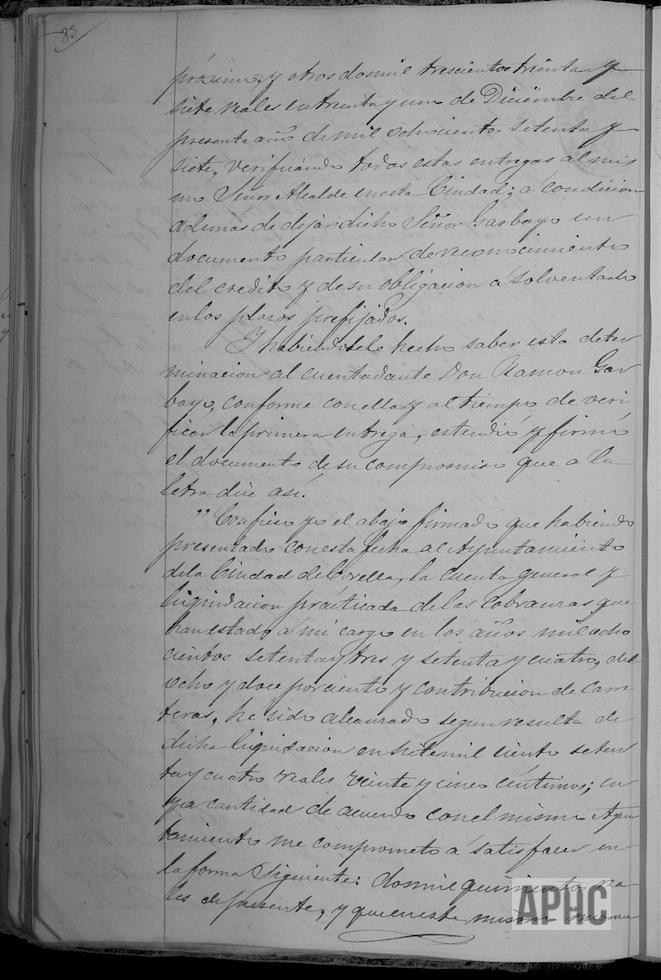 83
próximo, y otros dosmil trescientos treinta y
siete reales en treinta y uno de Diciembre del
presente año de mil ochocientos setenta y
siete, verificándo todas estas entregas al mis
mo Señor Alcalde en esta Ciudad; á condicion
además de dejar dicho Señor Garbayo un
documento particular de reconocimiento
del credito y de su obligacion á solventarlo
en los plazos prefijados.
Y habiendosele hecho saber esta deter
minacion al cuentadante Don Ramon Gar
bayo, conforme con ella y al tiempo de veri
ficar la primera entrega, estendió y firmó
el documento de su compromiso que a la
letra dice asi.
" Confieso yo el abajo firmado que habiendo
presentado con esta fecha al Ayuntamiento
de la Ciudad de Corella, la cuenta general y
liquidacion prácticada de las cobranzas que
han estado á mi cargo en los años mil ocho
cientos setenta y tres y setenta y cuatro, del
ocho y doce por ciento y contribucion de carre
teras, he sido alcanzado segun resulta de
dicha liquidacion en siete mil ciento seten
ta y cuatro reales veinte y cinco céntimos; cu
ya cantidad de acuerdo con el mismo Ayun
tamiento me comprometo á satisfacer en
la forma siguiente: dosmil quinientos rea
les de presente, y que en este mismo
APHC